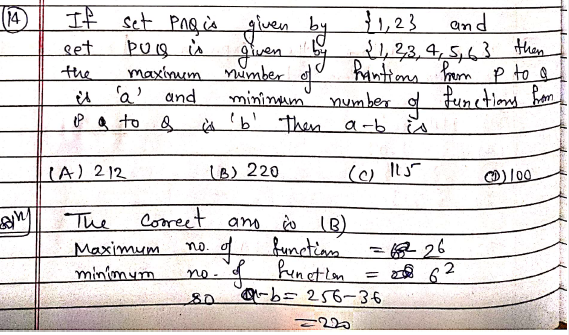 14) If set P∩Q is given by {1,2} and
set PUQ is given by {1,2,3,4,5,6} then
the maximum number of funtions from P to Q
is 'a' and minimum number of functions from
P to Q is 'b' then a-b is
(A) 212 (B) 220 (C) 115 (D) 100
Solⁿ) The correct ans is (B)
Maximum no. of function = 2⁶
minimum no. of function = 6²
so a-b = 256-36
=220